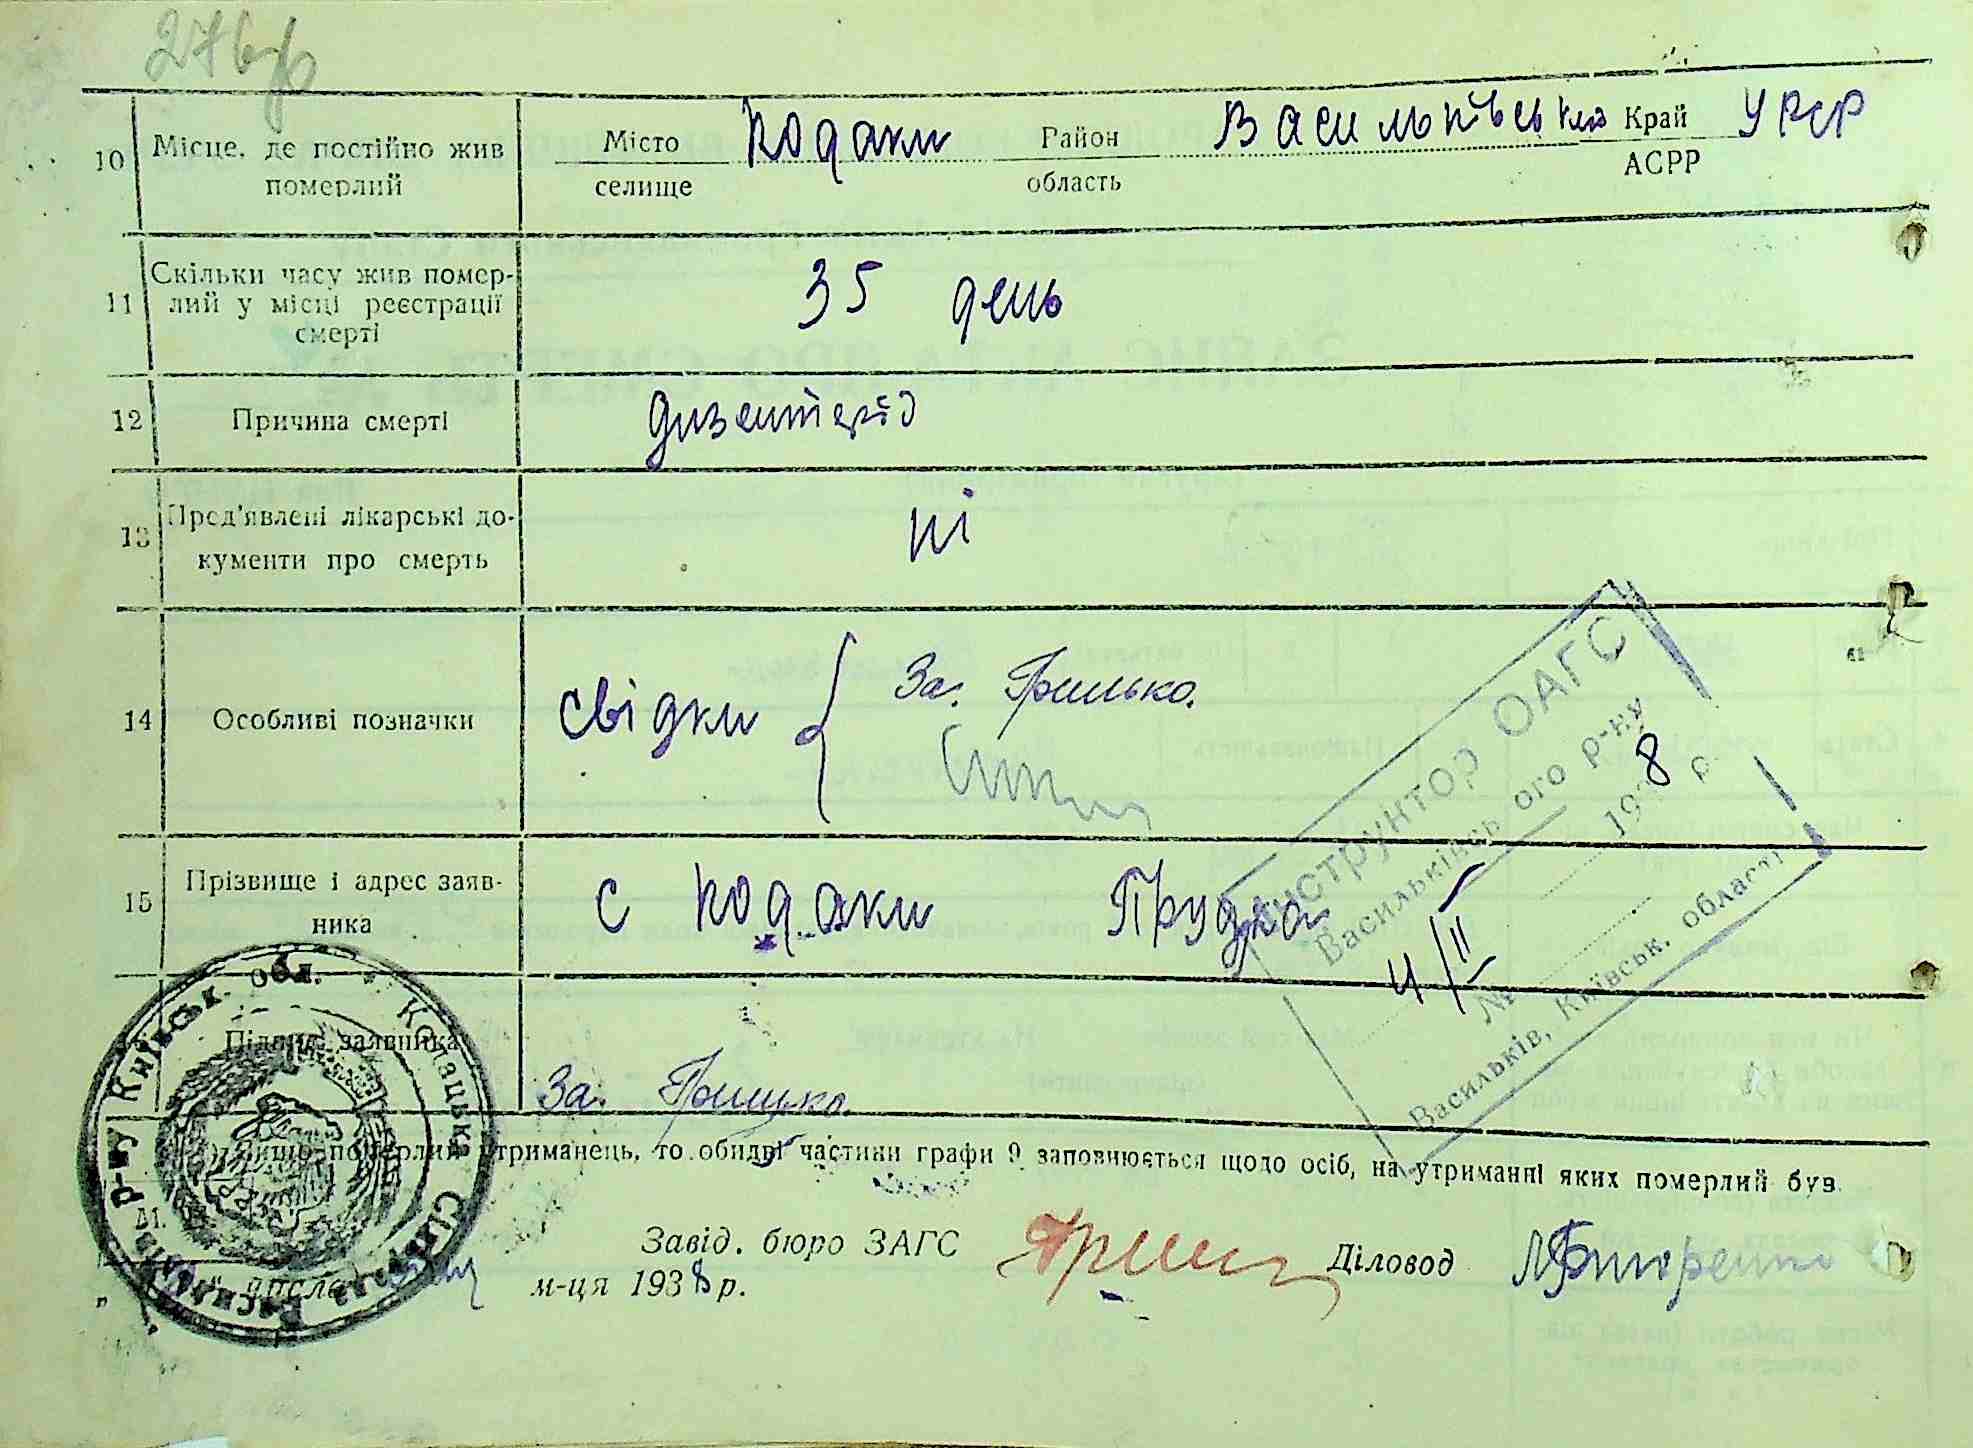 276зв
10 Місце, де постійно жив Місто Кодаки Район Васильківськ Край УРСР
померлий селище область АСРР
11 Скільки часу жив помер-
лий у місці реєстрації 35 день
смерті
12 Причина смерті дизентерія
13 Пред'явлені лікарські до- ні
кументи про смерть
14 Особливі позначки свідки За.
Інструктор ОАГС
Васильківськ ого р-ну
4/II 1938 р.
№
Васильків, Київськ. області
15 Прізвище і адрес заяв- с Кодаки
ника
Підпис заявника За.
померлий утриманець, то обидві частини графи 9 заповнюється щодо осіб, на утриманні яких померлий був.
Завід. бюро ЗАГС Діловод
м-ця 1938 р.
Київськ. обл. Кодацька Сільрада Васильків р-ну